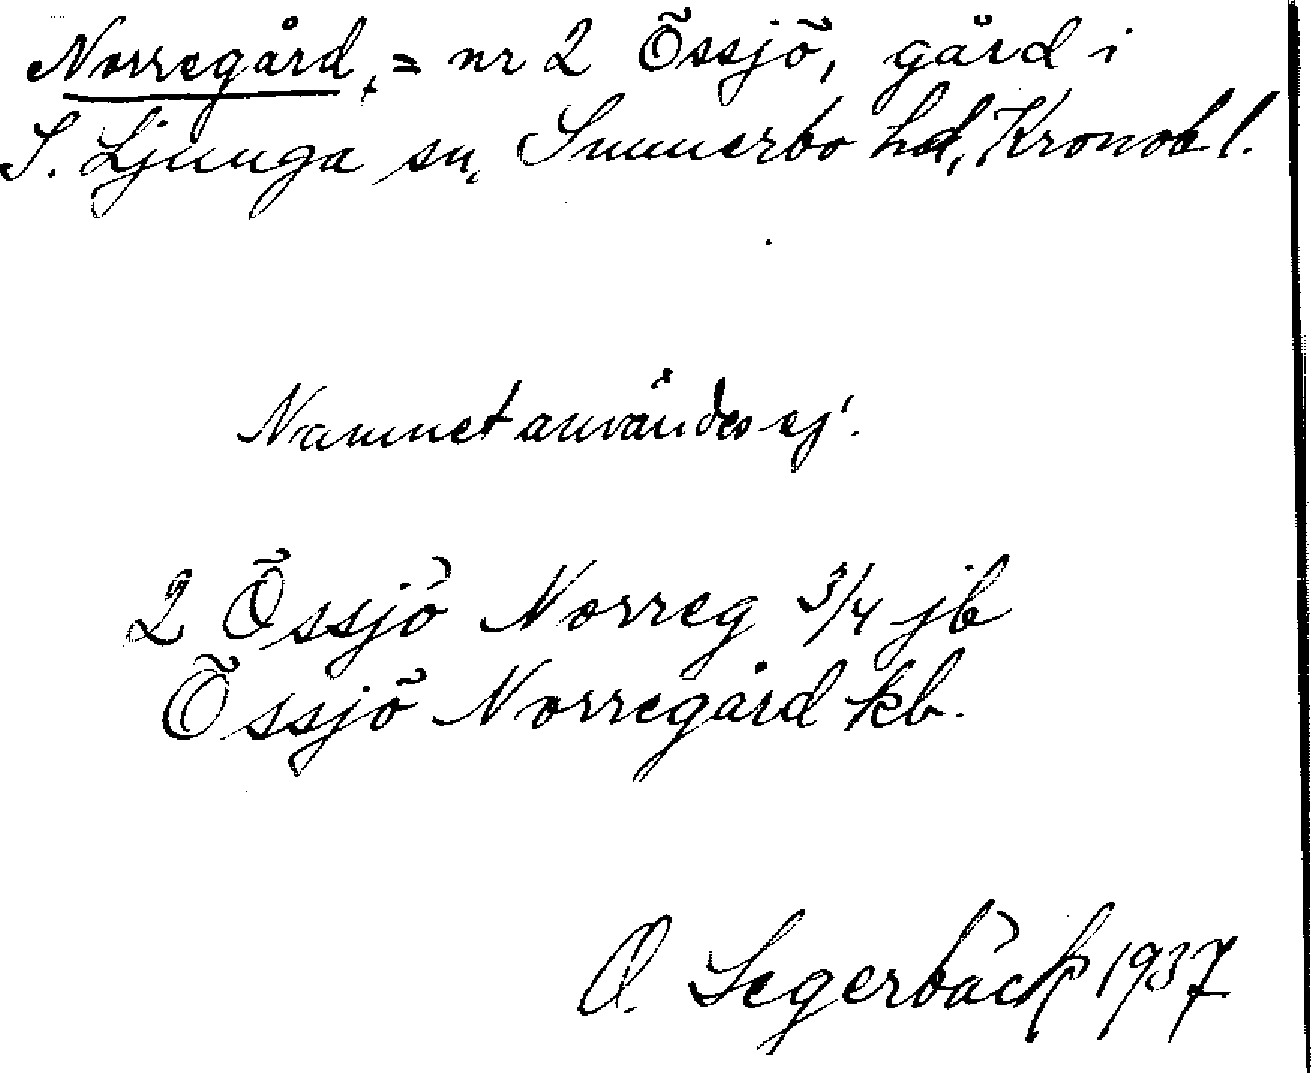 Norregård, = nr 2 Össjö, gård i
S. Ljunga sn, Sunnerbo hd, Kronob l.
Namnet användes ej.
2 Össjö Norreg 3/4 jb
Össjö Norregård kb.
O. Segerbäck 1937